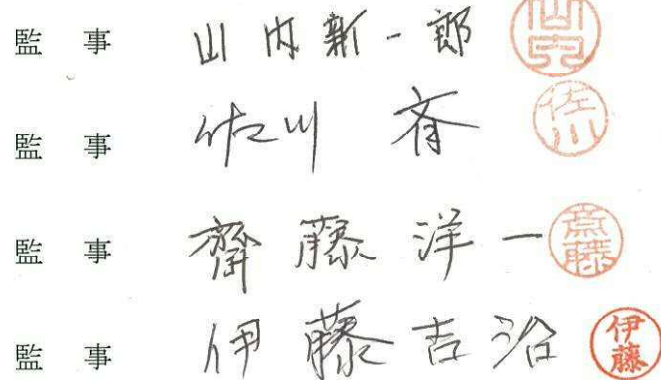 監事 山内新一郎 山内
監事 佐川 斉 佐川
監事 齊藤洋一 斎藤
監事 伊藤吉治 伊藤